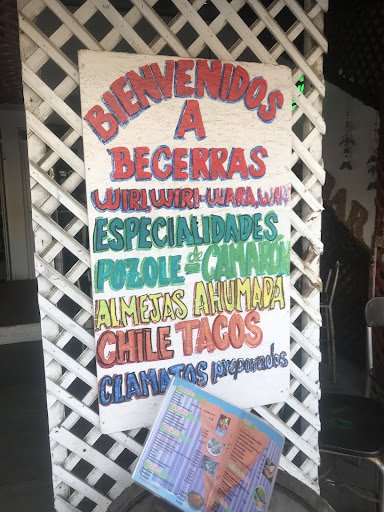 BIENVENIDOS
A
BECERRAS
WIRI, WIRI-WARA, WARA
ESPECIALIDADES
POZOLE de CAMARON
ALMEJAS AHUMADA
CHILE TACOS
CLAMATOS preparados